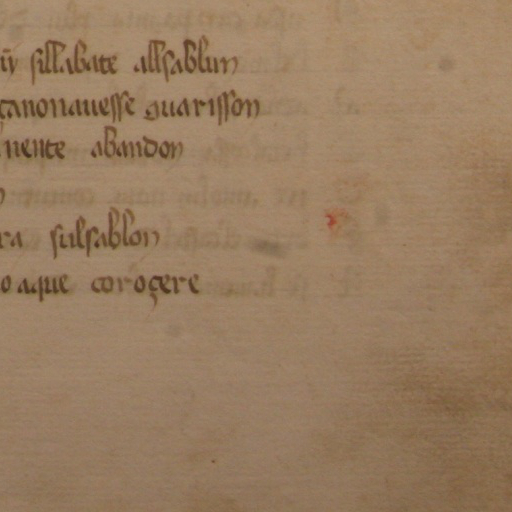 sillabate allsablun
canonauesse guarisson
nente abandon
ra sulsablon
o aque coroçere